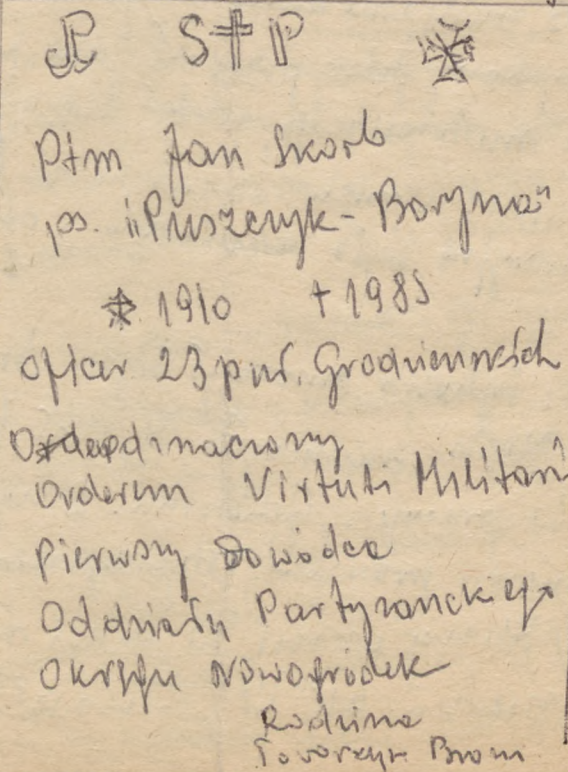 S†P
Ptm Jan Skorb
ps. "Puszczyk - Boryna"
* 1910 † 1985
oficer 23 p uł. Grodzieńskich
Odznaczony
Orderem Virtuti Militari
Pierwszy Dowódca
Oddziału Partyzanckiego
Okręgu Nowogródek
Rodzina
Towarzysze Broni